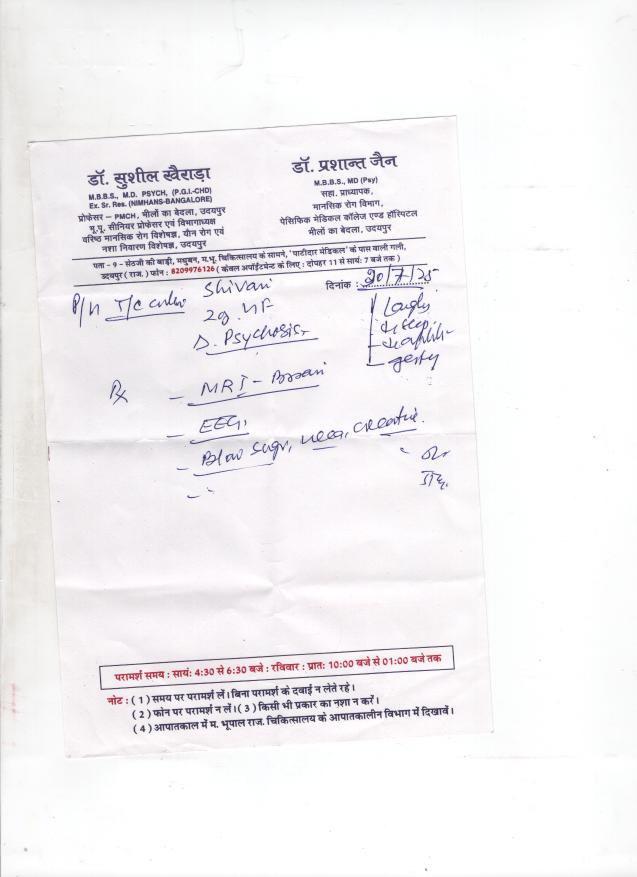 डॉ. सुशील खैराड़ा
M.B.B.S., M.D. PSYCH, (P.G.I.-CHD)
Ex. Sr. Res. (NIMHANS-BANGALORE)
प्रोफेसर – PMCH, भीलों का बेदला, उदयपुर
भू.पू. सीनियर प्रोफेसर एवं विभागाध्यक्ष
वरिष्ठ मानसिक रोग विशेषज्ञ, यौन रोग एवं
नशा निवारण विशेषज्ञ, उदयपुर
डॉ. प्रशान्त जैन
M.B.B.S., MD (Psy)
सहा. प्राध्यापक,
मानसिक रोग विभाग,
पेसिफिक मेडिकल कॉलेज एण्ड हॉस्पिटल
भीलों का बेदला, उदयपुर
पता - 9 - सेठजी की बाड़ी, मधुबन, म.भू. चिकित्सालय के सामने, 'पाटीदार मेडिकल' के पास वाली गली,
उदयपुर ( राज. ) फोन : 8209976126 ( केवल अपॉइंटमेन्ट के लिए : दोपहर 11 से सायं: 7 बजे तक )
दिनांक : 20/7/25
Shivani
Psychosis
Rx
- MRI - Brain
- EEG,
- Blood sugar, urea, creatine.
परामर्श समय : सायं: 4:30 से 6:30 बजे : रविवार : प्रात: 10:00 बजे से 01:00 बजे तक
नोट : ( 1 ) समय पर परामर्श लें। बिना परामर्श के दवाई न लेते रहे।
( 2 ) फोन पर परामर्श न लें। ( 3 ) किसी भी प्रकार का नशा न करें।
( 4 ) आपातकाल में म. भूपाल राज. चिकित्सालय के आपातकालीन विभाग में दिखावें।